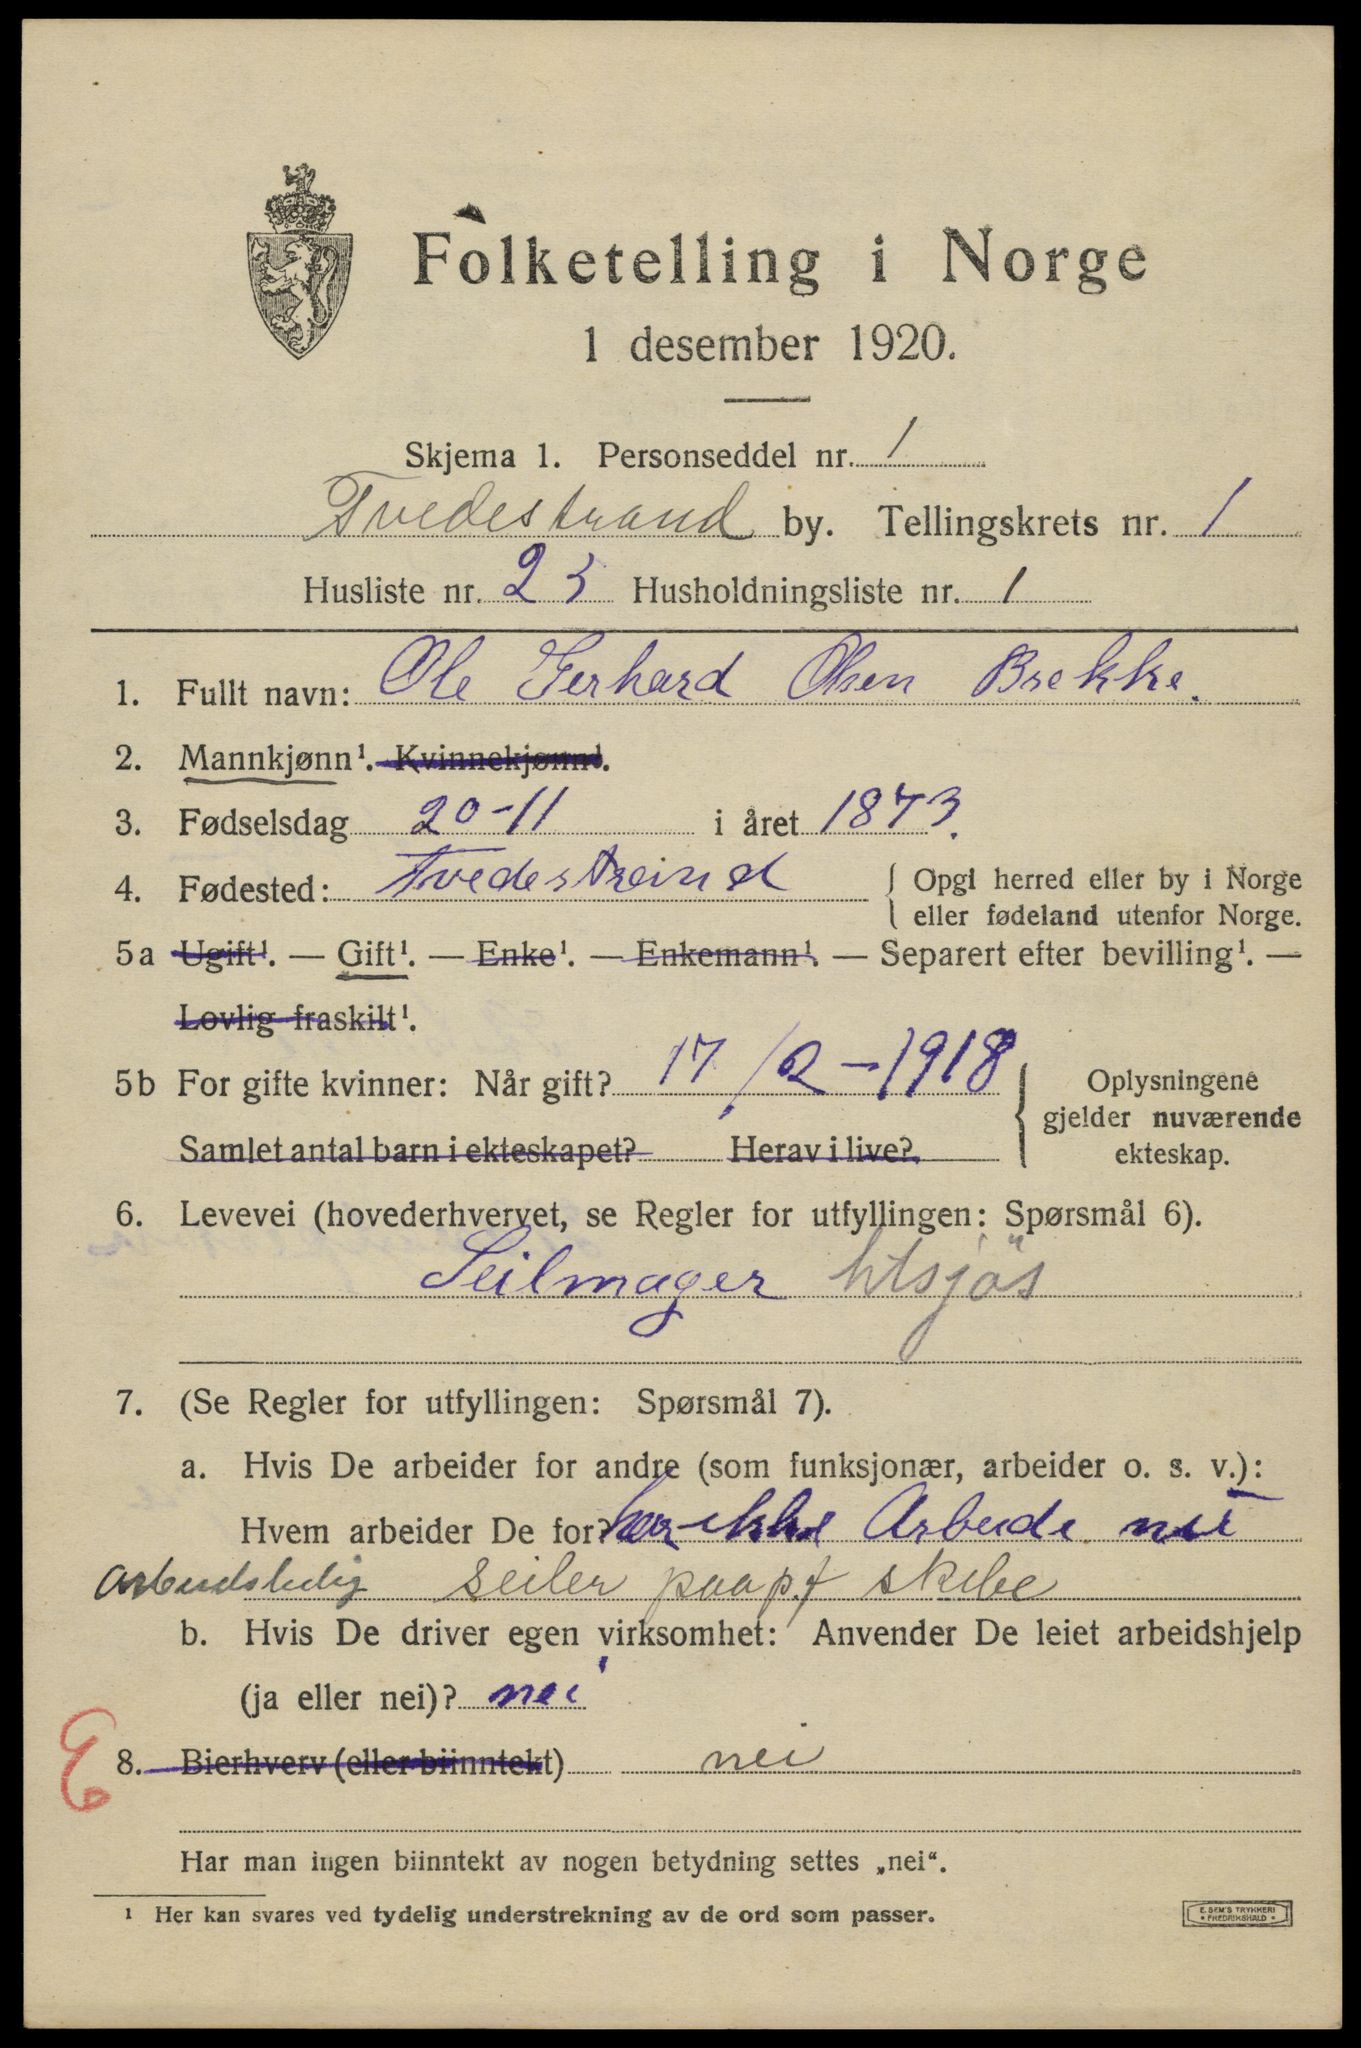 Folketelling i Norge
1 desember 1920.
Skjema 1. Personseddel nr. 1
Tvedestrand by. Tellingskrets nr. 1
Husliste nr. 23 Husholdningsliste nr. 1
1. Fullt navn: Ole Gerhard Olsen Brekke.
2. Mannkjønn¹. Kvinnekjønn¹.
3. Fødselsdag 20-11 i året 1873.
4. Fødested: Tvedestrand { Opgi herred eller by i Norge
eller fødeland utenfor Norge.
5a Ugift¹. — Gift¹. — Enke¹. — Enkemann¹. — Separert efter bevilling¹. —
Lovlig fraskilt¹.
5b For gifte kvinner: Når gift? 17/2-1918
Samlet antal barn i ekteskapet? Herav i live?
Oplysningene
gjelder nuværende
ekteskap.
6. Levevei (hovederhvervet, se Regler for utfyllingen: Spørsmål 6).
Seilmager utsjös
7. (Se Regler for utfyllingen: Spørsmål 7).
a. Hvis De arbeider for andre (som funksjonær, arbeider o. s. v.):
Hvem arbeider De for? har ikke Arbeide nu
arbeidsledig seiler paa skibe
b. Hvis De driver egen virksomhet: Anvender De leiet arbeidshjelp
(ja eller nei)? nei
8. Bierhverv (eller biinntekt) nei
Har man ingen biinntekt av nogen betydning settes „nei“.
¹ Her kan svares ved tydelig understrekning av de ord som passer.
E. SEM'S TRYKKERI
FREDRIKSHALD